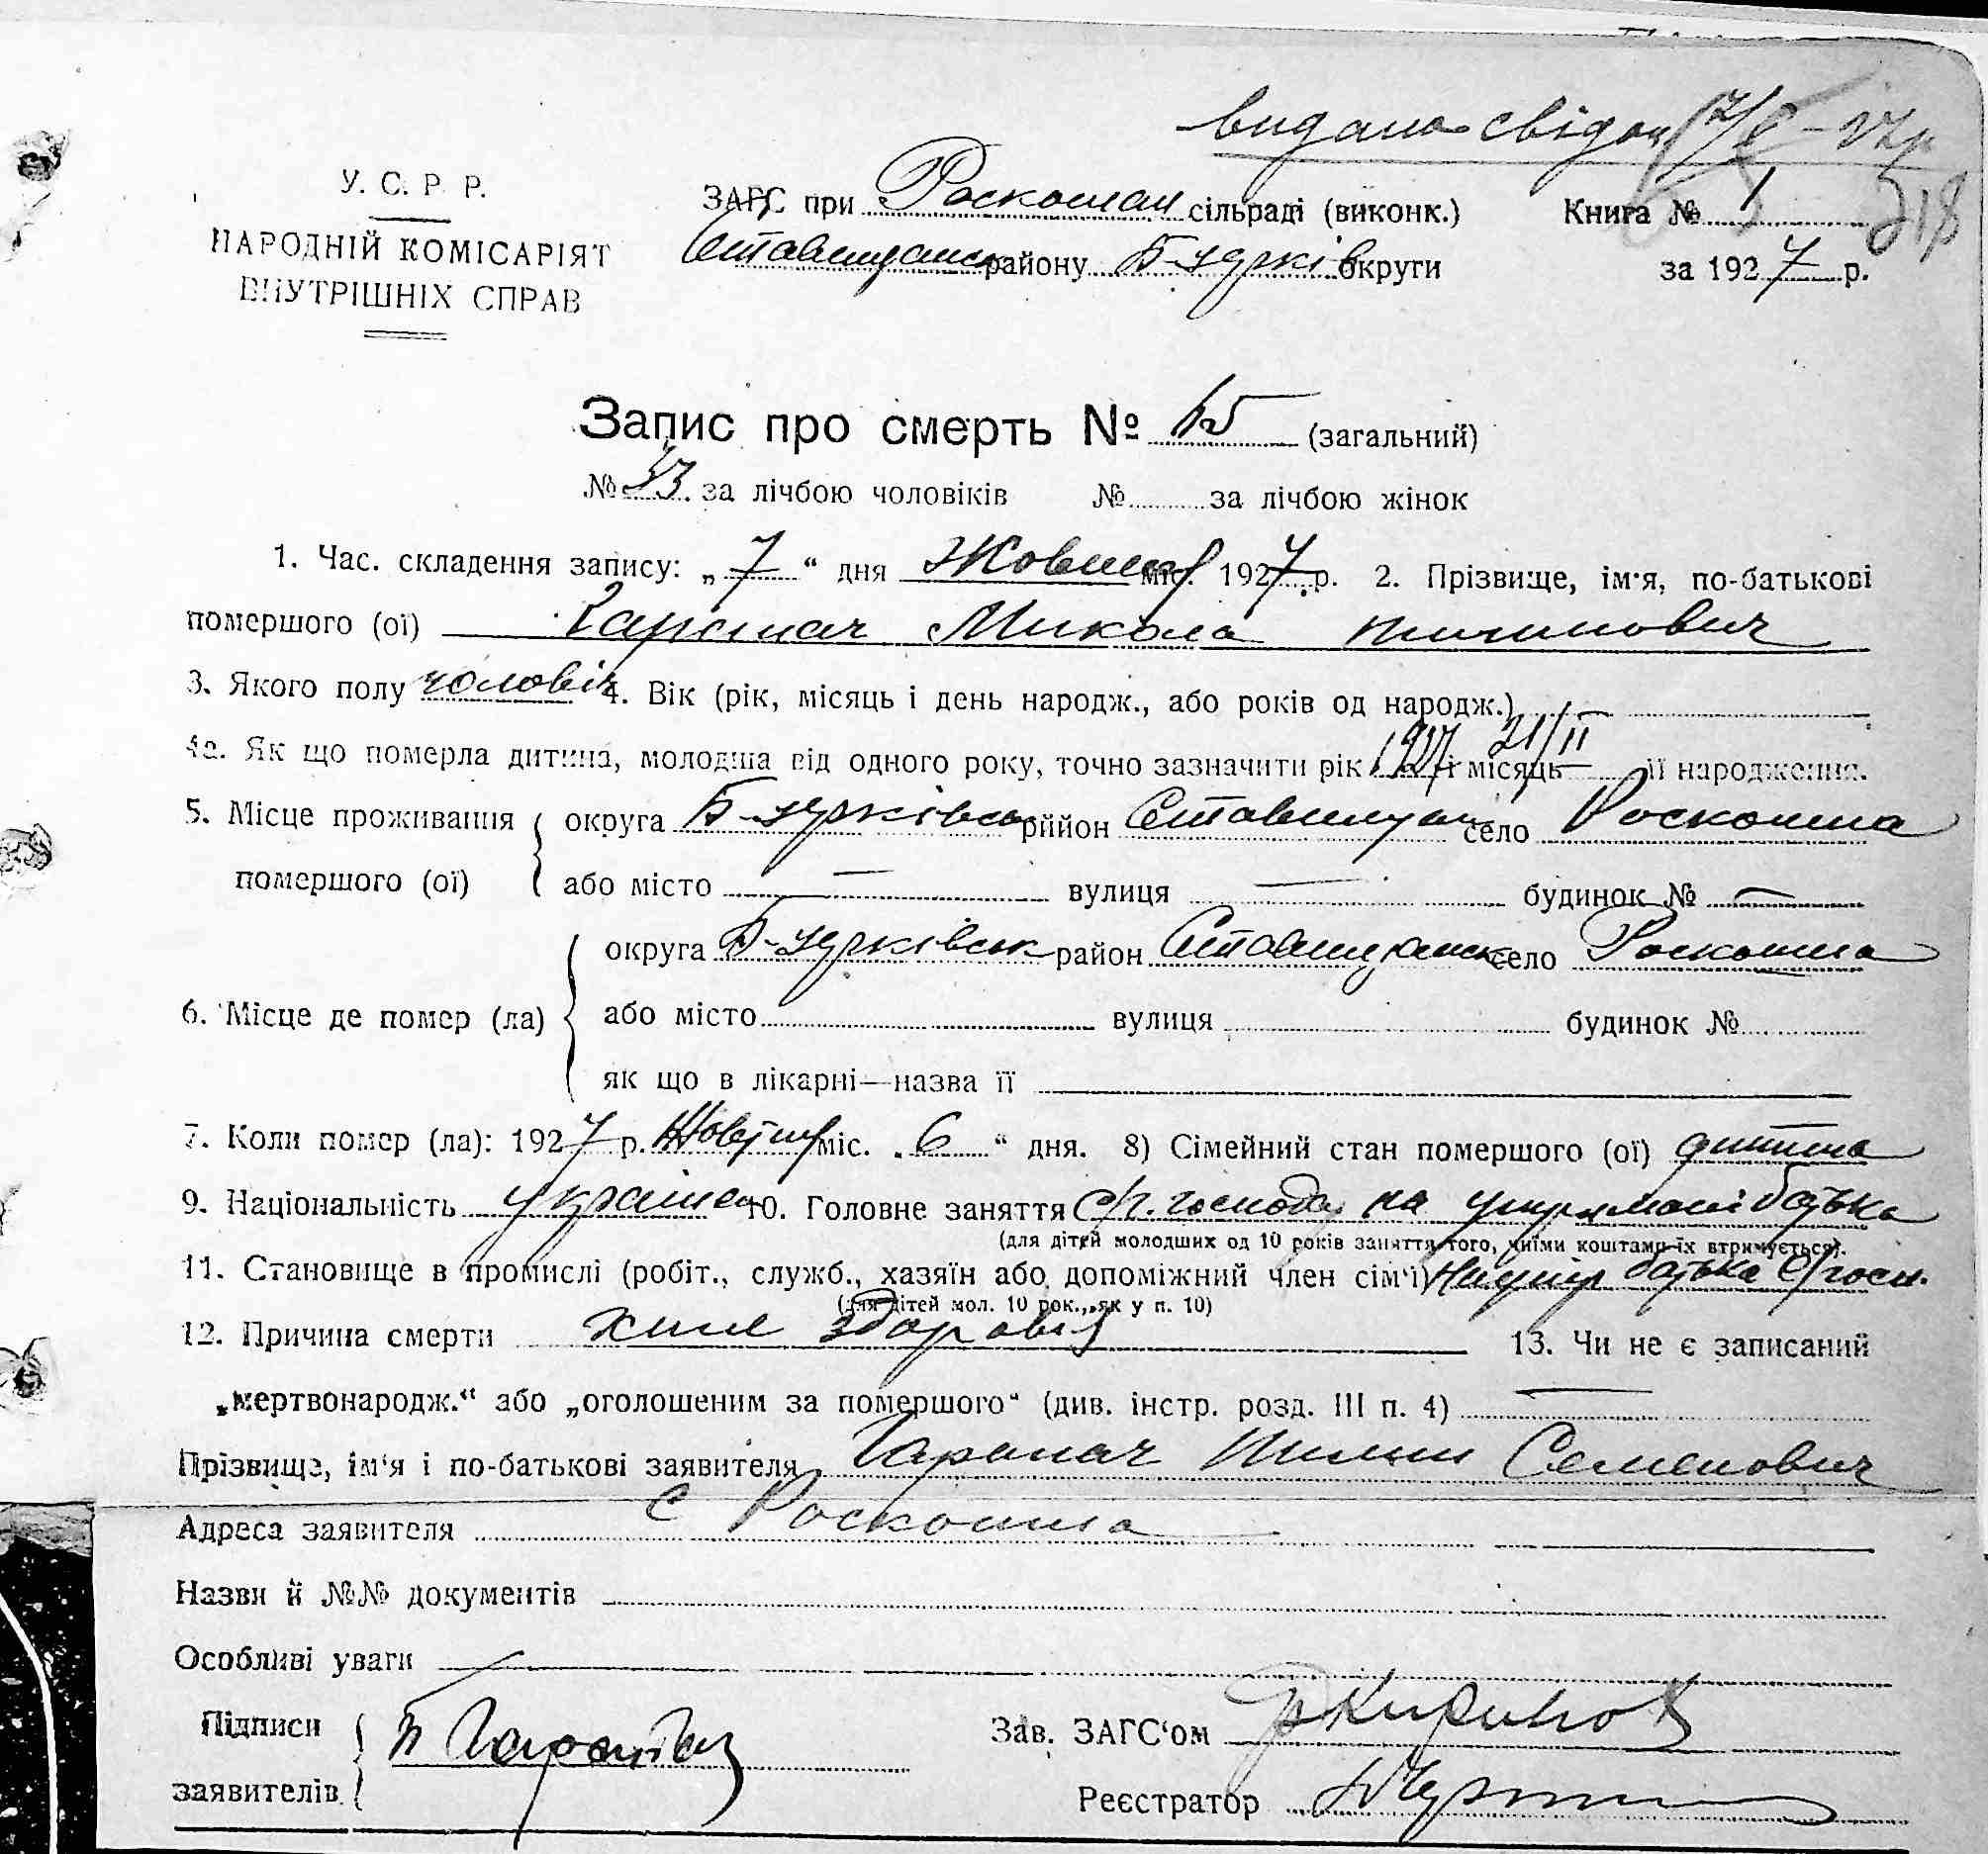 видано свідоц
У. С. Р. Р.
НАРОДНІЙ КОМІСАРІЯТ
ВНУТРІШНІХ СПРАВ
ЗАГС при Роскошан сільраді (виконк.) Книга № 1
218
Ставищанск району Б-церків округи за 1927 р.
Запис про смерть № 65 (загальний)
№ 33 за лічбою чоловіків № за лічбою жінок
1. Час. складення запису: „7“ дня Жовтня міс. 1927 р. 2. Прізвище, ім'я, по-батькові
помершого (ої) Микола
3. Якого полу чоловіч 4. Вік (рік, місяць і день народж., або років од народж.) —
4а. Як що померла дитина, молодша від одного року, точно зазначити рік 1927 і місяць 21/II її народження.
5. Місце проживання округа Б-церківськ район Ставищан село Роскошна
помершого (ої) або місто — вулиця — будинок № —
округа Б-церківськ район Ставищанськ село Роскошна
6. Місце де помер (ла) або місто вулиця будинок №
як що в лікарні—назва її
7. Коли помер (ла): 1927 р. Жовтня міс. „6“ дня. 8) Сімейний стан помершого (ої) дитина
9. Національність українец 10. Головне заняття с/г. господар на утриманні батька
(для дітей молодших од 10 років заняття того, чиїми коштами їх втримується).
11. Становище в промислі (робіт., служб., хазяїн або допоміжний член сім'ї) батька с/госп.
(для дітей мол. 10 рок., як у п. 10)
12. Причина смерти хиле здоровія 13. Чи не є записаний
„мертвонародж.“ або „оголошеним за помершого“ (див. інстр. розд. III п. 4) —
Прізвище, ім'я і по-батькові заявителя Семенович
Адреса заявителя с Роскошна
Назви й №№ документів
Особливі уваги —
Підписи
Зав. ЗАГС'ом
заявителів
Реєстратор